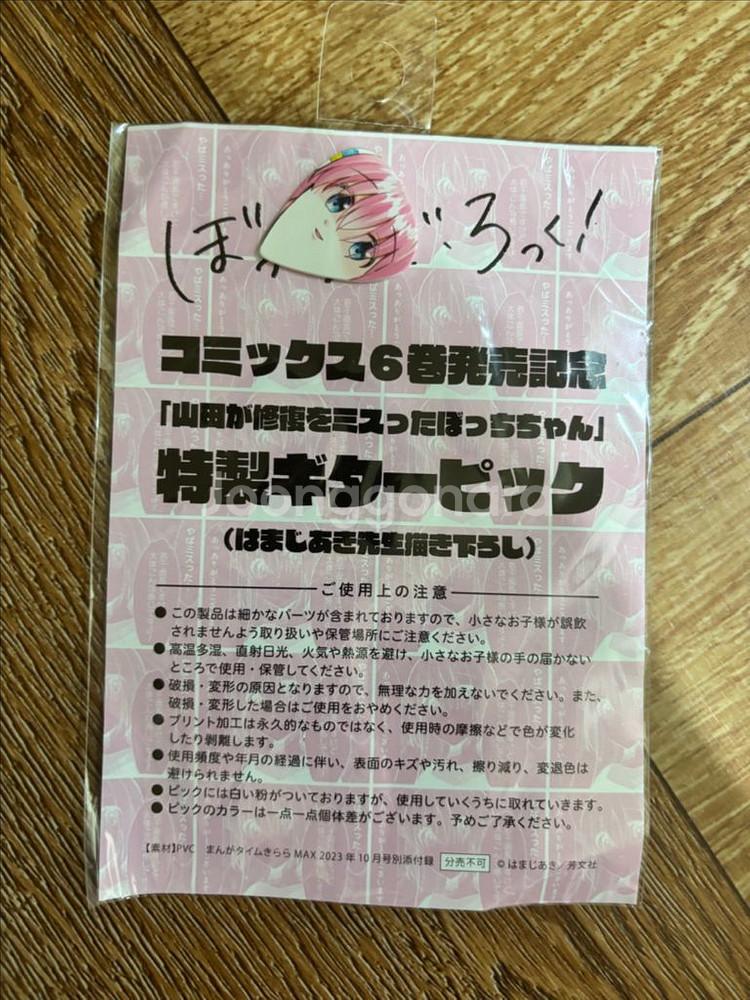 ぼっち・ざ・ろっく！
コミックス６巻発売記念
「山田が修復をミスったぼっちちゃん」
特製ギターピック
joonggonara
（はまじあき先生描き下ろし）
ご使用上の注意
●この製品は細かなパーツが含まれておりますので、小さなお子様が誤飲
されませんよう取り扱いや保管場所にご注意ください。
●高温多湿、直射日光、火気や熱源を避け、小さなお子様の手の届かない
ところで使用・保管してください。
●破損・変形の原因となりますので、無理な力を加えないでください。また、
破損・変形した場合はご使用をおやめください。
●プリント加工は永久的なものではなく、使用時の摩擦などで色が変化
したり剥離します。
●使用頻度や年月の経過に伴い、表面のキズや汚れ、擦り減り、変退色は
避けられません。
●ピックには白い粉がついておりますが、使用していくうちに取れていきます。
●ピックのカラーは一点一点個体差がございます。予めご了承ください。
【素材】PVC まんがタイムきららMAX 2023年10月号別添付録 分売不可 ©はまじあき／芳文社